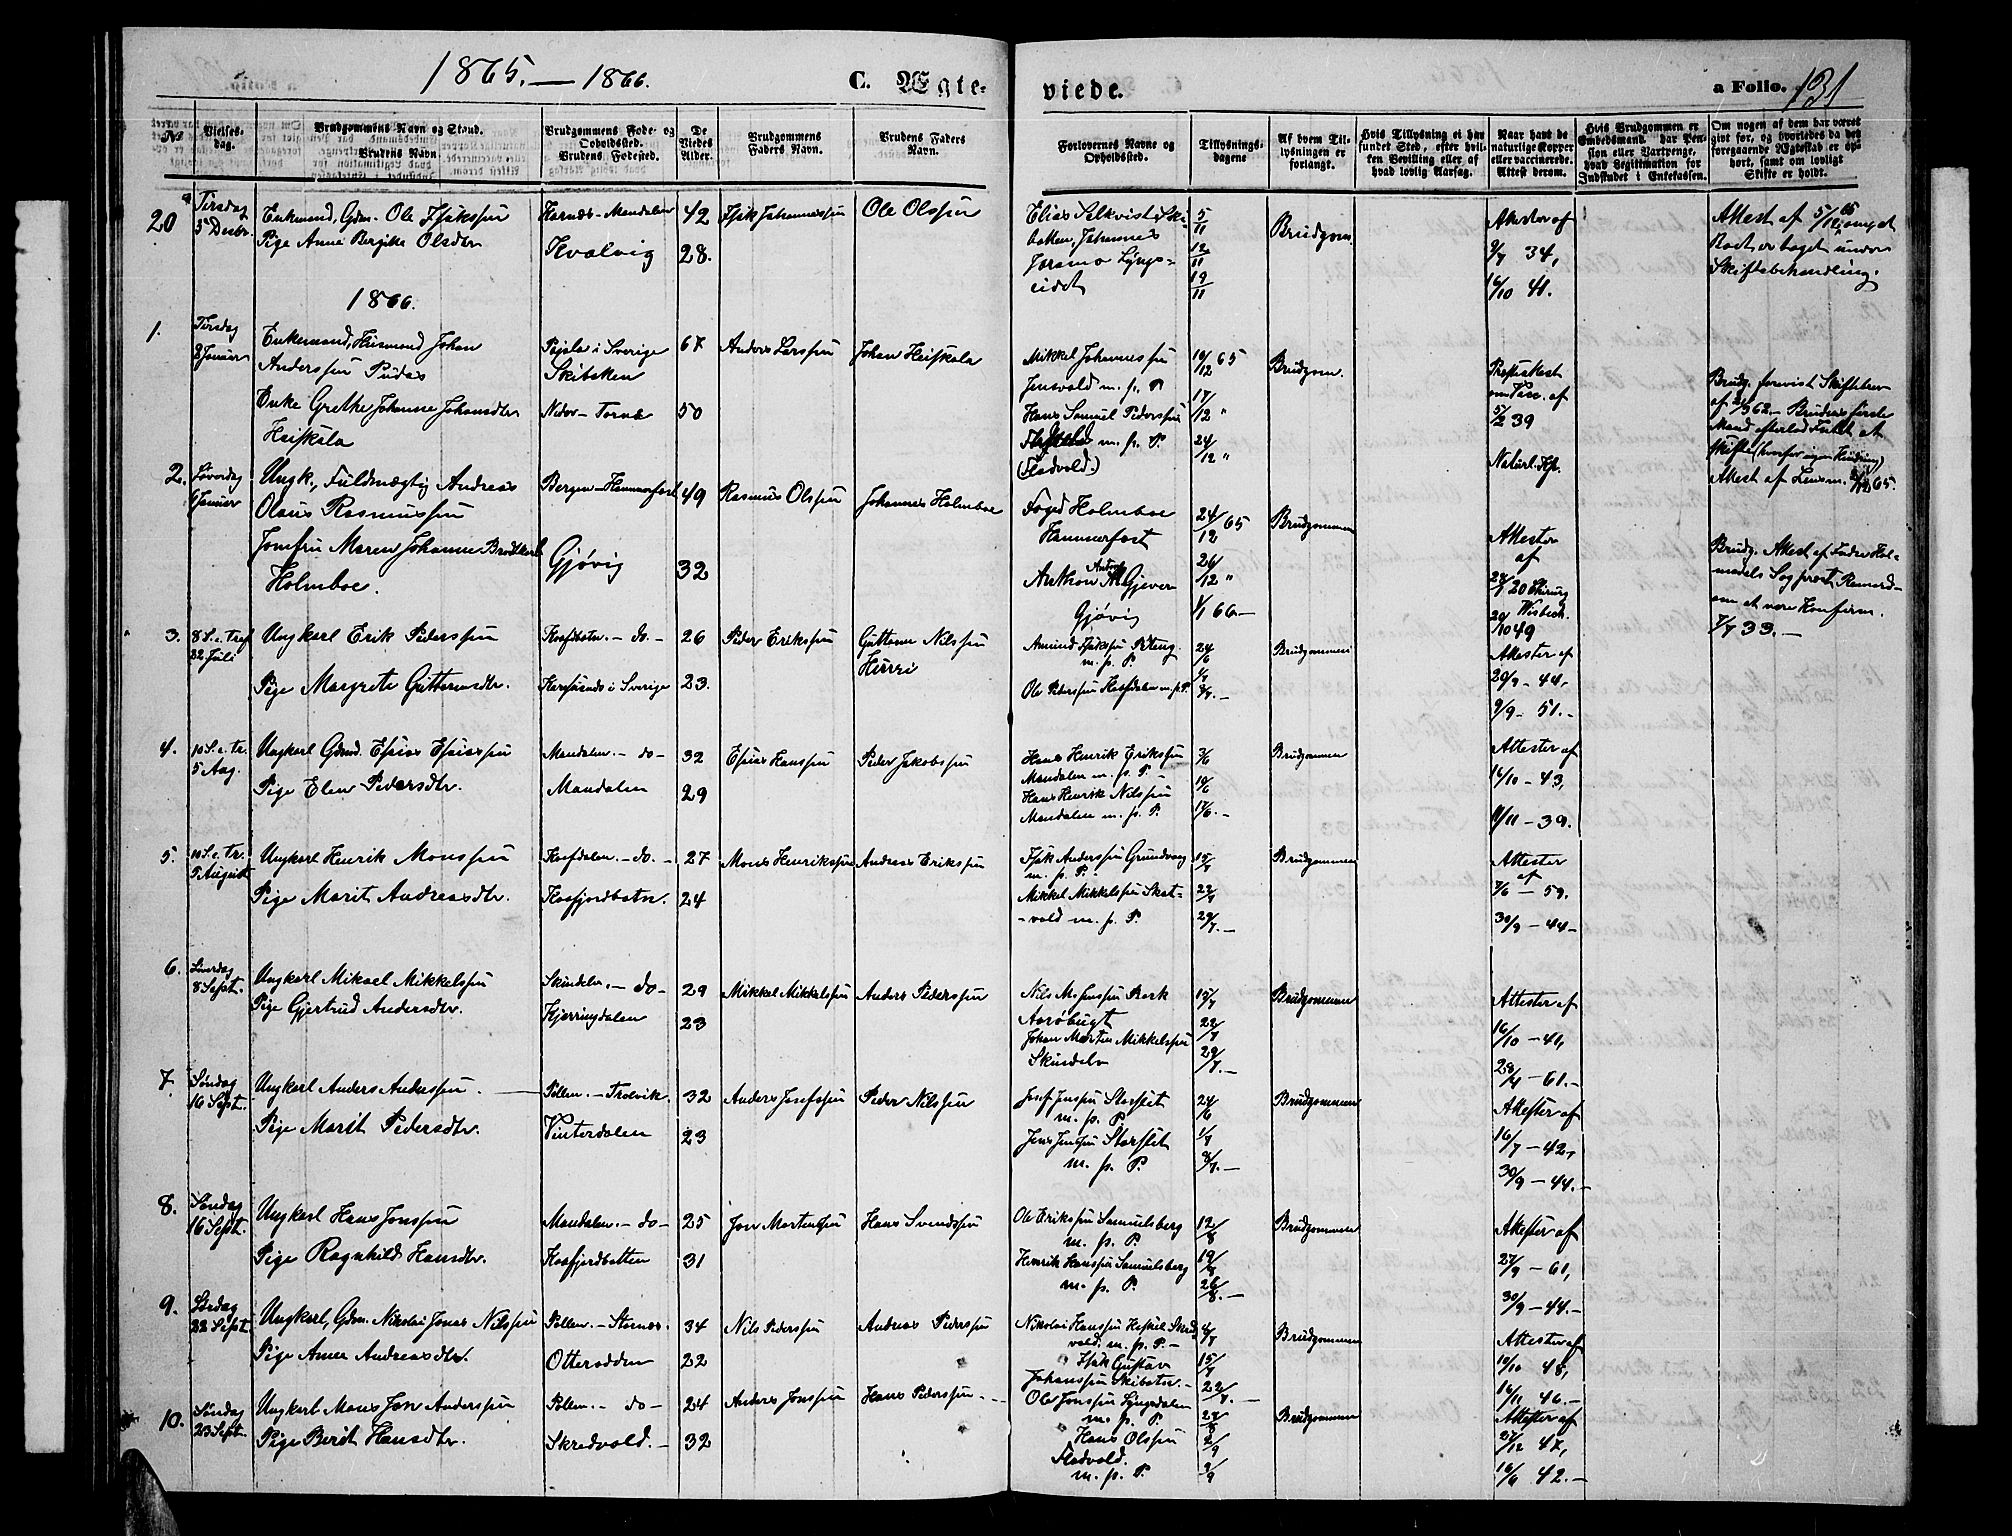 1865. — 1866.
C. Ægte-
viede.
a Folio. 131
No
Vielses-
dag.
Brudgommens Navn og Stand.
Brudens Navn
Brudgommens Føde- og
Opholdssted.
Brudens Fødested.
De
Viedes
Alder.
Brudgommens
Faders Navn.
Brudens Faders
Navn.
Forlovernes Navne og
Opholdssted.
Tillysnings-
dagene
Af hvem Til-
lysningen er
forlangt.
Hvis Tillysning ei har
fundet Sted, efter hvil-
ken Bevilling eller af
hvad lovlig Aarsag.
Naar havt de
naturlige Kopper
eller vaccinerede.
Attest derom.
Hvis Brudgommen er
Embedsmand har Pen-
sion eller Vartpenge,
hvad Legitimation for
Indskudet i Enkekassen.
Om nogen af dem har været
givt før, og hvorledes da det
foregaaende Ægteskab er op-
hørt, samt om lovligt
Skifte er holdt.
20
Tirsdag
5 Decbr.
Enkemand, Gdm. Ole Isakssen
Pige Anne Bergitte Olsdtr
Hornæs - Mandalen
Kvalvig
42
28.
Isak Johannessen
Ole Olssen
Elias Selkvist Ski-
botten, Johannes
Joramo Lyngs-
eidet
5/11
12/11
19/11
Brudgom.
Attester af
9/7 34,
16/10 41.
Attest af 5/12 65
Boet er taget under
Skiftebehandling.
1866.
1.
8 Januar
Enkemand, Husmand Johan
Anderssen Pudas
Enke Grethe Johanne Johansdtr
Heiskala
Pajala i Sverige
Skibotten
Neder-Torneå
67
50
Anders Larssen
Johan Heiskala
Mikkel Johannessen
m. p. P.
Hans Samuel Pederssen
m. p. P.
(Fladvold.)
10/12 65
17/12 "
24/12 "
Brudgom.
5/2 39
Naturl. Kop.
Brudg. forevist Skiftebrev
Brudens første
Mand efterlod
Attest af Lensm. 65.
2.
Løverdag
6 Januar
Ungk., Fuldmægtig Andreas
Olaus Rasmussen
Jomfru Maren Johanne Brodtkorb
Holmboe.
Bergen - Hammerfest
Gjøvig
49
32
Rasmus Olssen
Johannes Holmboe
Foged Holmboe
Hammerfest
Gjæver
Gjøvig
24/12 65
26/12 "
1/1 66 —
Brudgommen
Attester
af
20 Chirurg
Wisbech
49
Brudg. Attest af
om at være Konfirm.
33. —
3.
8 S. e. Tref
22 Juli
Ungkarl Erik Pederssen
Pige Margrete Guttormsdtr.
Kaafjbotn. — do. —
Karesuando i Sverige
26
23.
Peder Erikssen
Guttorm Nilssen
Hurri
Amund Isakssen
m. p. P.
Ole Pederssen Kaafdalen m. p. P.
24/6
1/7
8/7. —
Brudgommen
Attester af
20/9 - 44,
9/9 - 51. —
4.
10 S. e. Tr.
5 Aug.
Ungkarl Gdmd. Esaias Esaiassen
Pige Elen Pedersdtr.
Mandalen. — do —
Mandalen
32
29
Esaias Hanssen
Peder Jakobssen
Hans Henrik Erikssen
Mandalen m. p. P. —
Hans Henrik Nilssen
Mandalen m. p. P.
3/6
10/6
17/6. —
Brudgommen
Attester af
16/10 - 43,
11/11 - 39.
5.
10 S. e. Tr.
5 August
Ungkarl Henrik Monssen
Pige Marit Andreasdtr.
Kaafdalen. — do. —
Kaafjordbotn.
27
24
Mons Henrikssen
Andreas Erikssen
Isak Anderssen Grundvang
m. p. P.
Mikkel Mikkelssen Skat-
-vold m. p. P.
15/7
22/7
29/7. —
Brudgommen
Attester
af
7/6 — 59.
30/9 - 44 —
6.
Løverdag
8 Sept.
Ungkarl Mikael Mikkelssen
Pige Gjertrud Andersdtr.
Skindelv. — do —
Kjerringdalen
29
23
Mikkel Mikkelssen
Anders Pederssen
Nils
Aarøbugt
Johan Martin Mikkelssen
Skindelv
15/7
22/7
29/7. —
Brudgommen
Attester af
16/10 - 41,
28/4 - 61. —
7.
Søndag
16 Sept.
Ungkarl Anders Anderssen. —
Pige Marit Pedersdtr.
Pollen. — Trolvik.
Vinterdalen
32
23
Anders Josefssen
Peder Nilssen
Josef Jenssen Storslet
m. p. P.
Jens Jenssen Storslet
m. p. P.
24/6
1/7
8/7. —
Brudgommen
Attester af
16/7 - 42,
30/9 - 44. —
8.
Søndag
16 Sept.
Ungkarl Hans Jonssen
Pige Ragnhild Hansdtr.
Mandalen. — do —
Kaafjordbotten
25
31
Jon Mortenssen
Hans Svendssen
Ole Erikssen Samuelsberg
m. p. P.
Henrik Hanssen Samuelsberg
m. p. P.
12/8
19/8
26/8. —
Brudgommen
Attester af
27/9 - 61,
30/9 - 44. —
9.
Lørdag
22 Sept.
Ungkarl, Gdm. Nikolai Jonas Nilssen
Pige Anne Andreasdtr.
Pollen. — Stornæs.
Otterodden
34
22
Nils Pederssen
Andreas Pederssen
Nikolai Hanssen
vold. m. p. P. —
Isak Gustav
Johanssen Skibotn. —
15/7
22/7. —
Brudgommen
Attester af
19/10 48,
16/11 46. —
10.
Søndag
23 Sept.
Ungkarl Mons Jon Anderssen
Pige Berit Hansdtr.
Pollen. — do —
Skredvold. —
24
32
Anders Jonssen
Hans Pederssen. —
Ole Jonssen Lyngsdalen
m. p. P.
Hans Olssen
Fladvold.
m. p. P.
2/9
9/9
Brudgommen
Attester af
27/12 47,
16/9 42. —